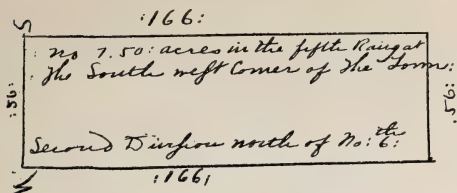 S
:166:
: no 7.50: acres in the fifth Raing at
: the South west Corner of The Town:
:56:
:56:
Second Divison north of No: 6:th
W
:166: